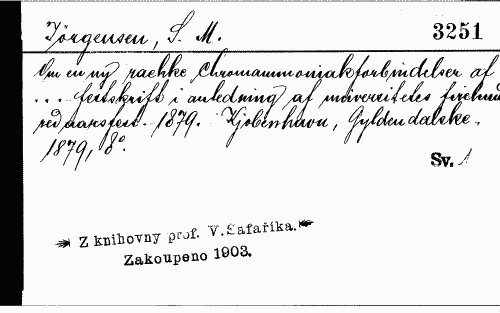 Jörgensen, S. M. 3251
Om en ny raekke Chromammoniakforbindelser af
... festskrift i anledning af universitetes firehund
red aarsfest. 1879. Kjøbenhavn, Gyldendalske.
1879, 8°.
Sv. 1
Z knihovny prof. V. Šafaříka.
Zakoupeno 1903.